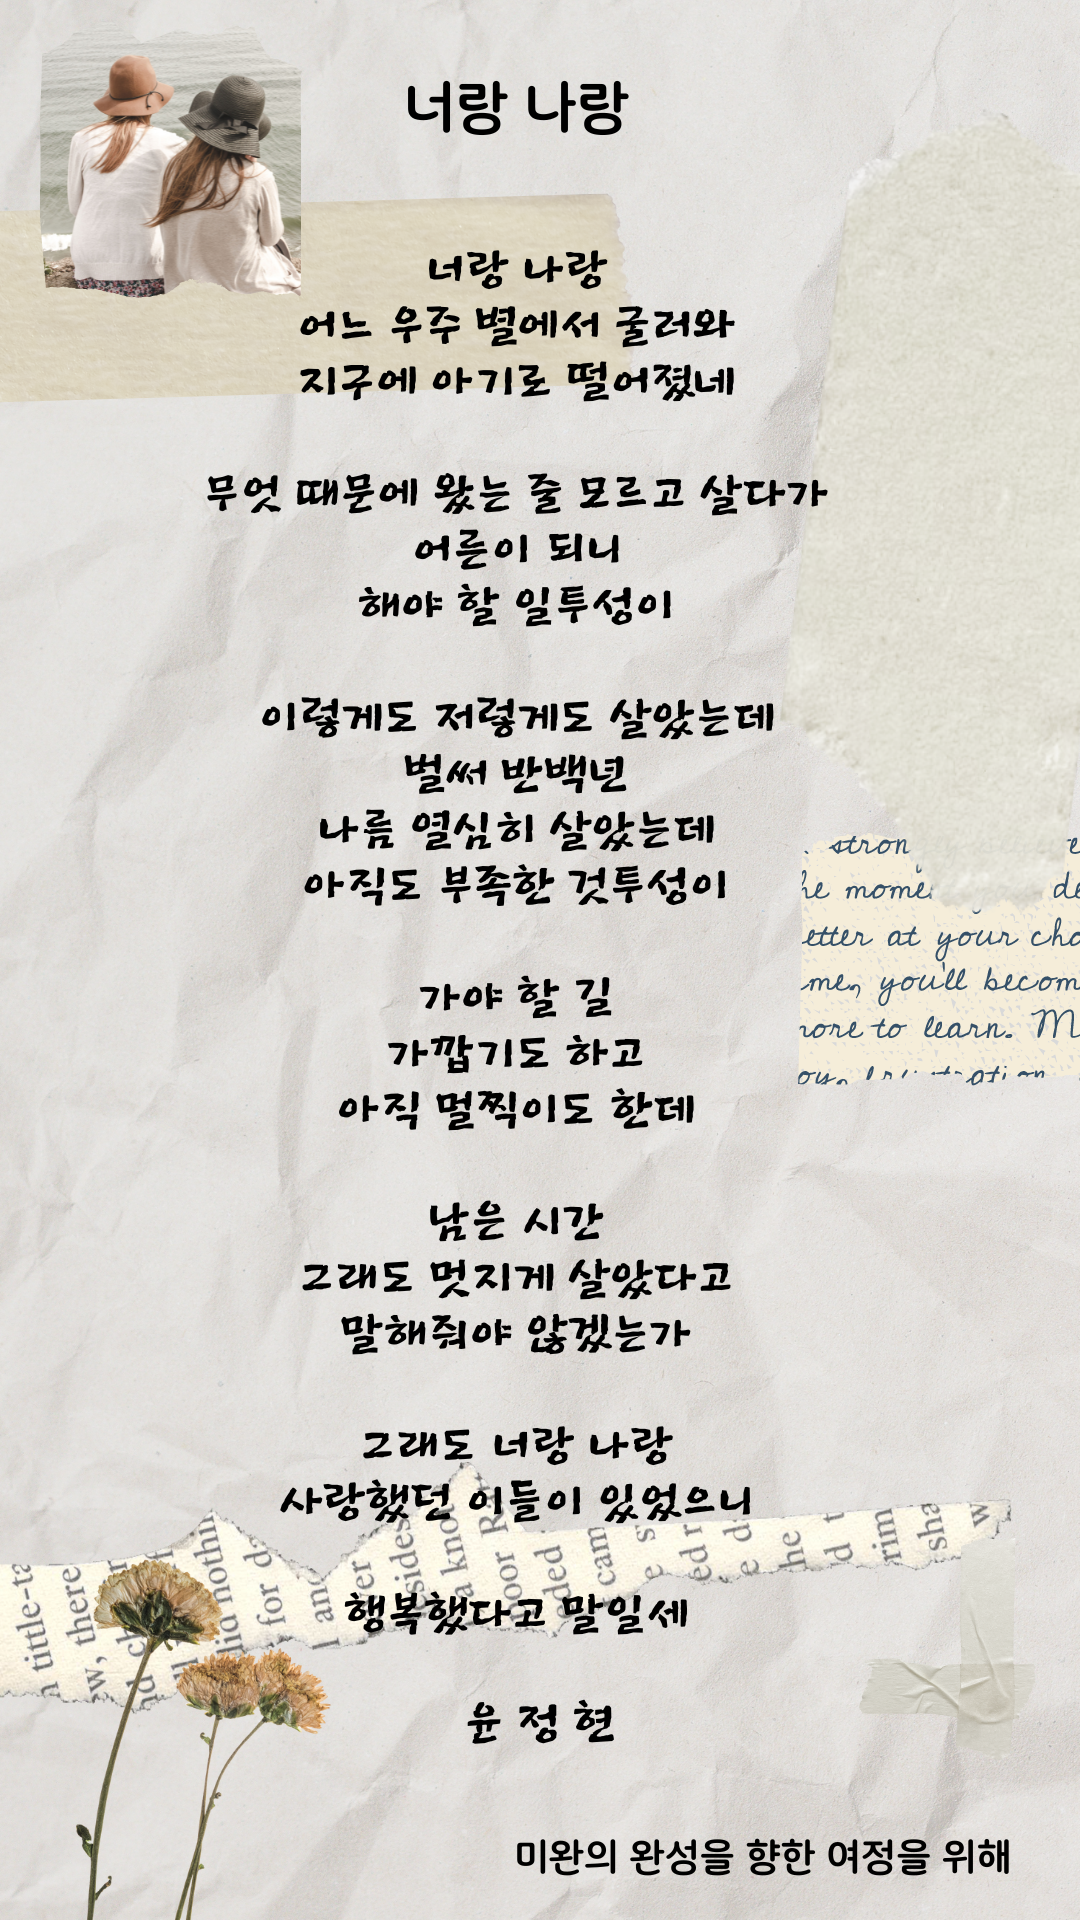 너랑 나랑
너랑 나랑
어느 우주 별에서 굴러와
지구에 아기로 떨어졌네
무엇 때문에 왔는 줄 모르고 살다가
어른이 되니
해야 할 일투성이
이렇게도 저렇게도 살았는데
벌써 반백년
나름 열심히 살았는데
아직도 부족한 것투성이
가야 할 길
가깝기도 하고
아직 멀찍이도 한데
남은 시간
그래도 멋지게 살았다고
말해줘야 않겠는가
그래도 너랑 나랑
사랑했던 이들이 있었으니
행복했다고 말일세
윤 정 현
미완의 완성을 향한 여정을 위해
stron
he mome
etter at your cho
me, you'll becom
more to learn. M
little-ta
there
nothin
for d
and
er
esides
a know
poor R
eded
cam
e s
ed r
e d
he
d t
rim
sha
w